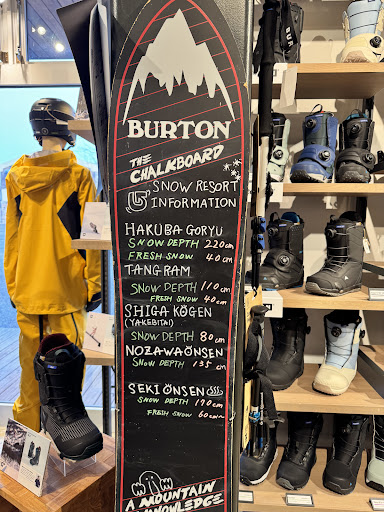 BURTON
THE
CHALKBOARD
SNOW RESORT
INFORMATION
HAKUBA GORYU
SNOW DEPTH 220cm
FRESH SNOW 40cm
TANGRAM
SNOW DEPTH 110cm
FRESH SNOW 40cm
SHIGA KŌGEN
(YAKEBITAI)
SNOW DEPTH 80cm
NOZAWAŌNSEN
SNOW DEPTH 135cm
SEKI ŌNSEN
SNOW DEPTH 170cm
FRESH SNOW 60cm
A MOUNTAIN
KNOWLEDGE